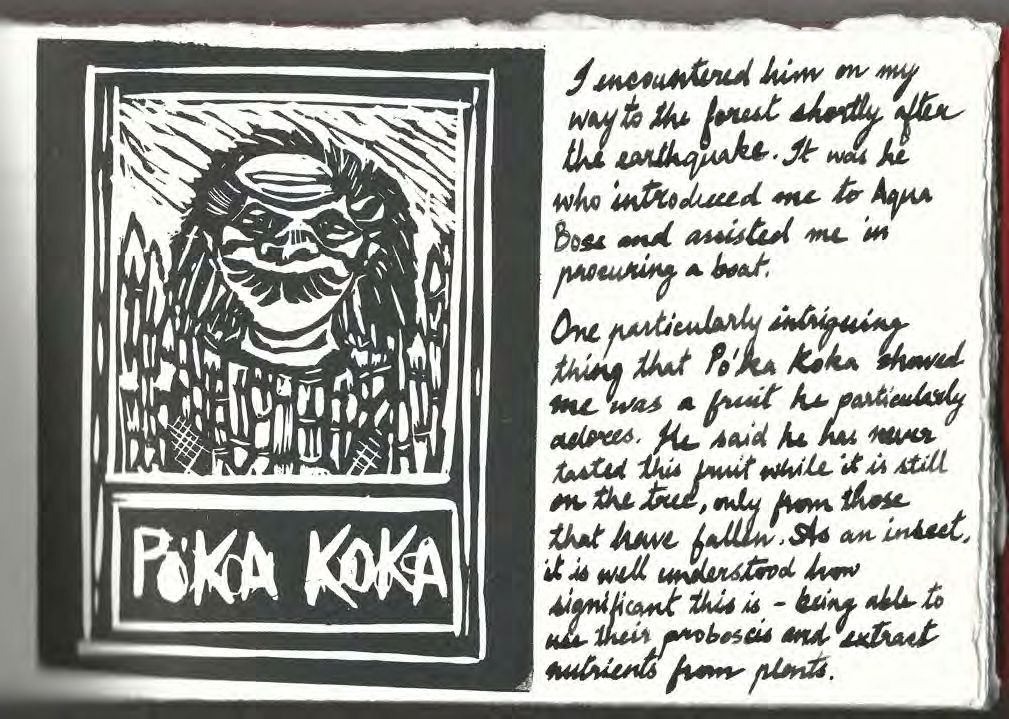 PóKA KOKA
I encountered him on my
way to the forest shortly after
the earthquake. It was he
who introduced me to Aqua
Bose and assisted me in
procuring a boat.
One particularly intriguing
thing that Pó'ka Koka showed
me was a fruit he particularly
adores. He said he has never
tasted this fruit while it is still
on the tree, only from those
that have fallen. As an insect,
it is well understood how
significant this is - being able to
use their proboscis and extract
nutrients from plants.